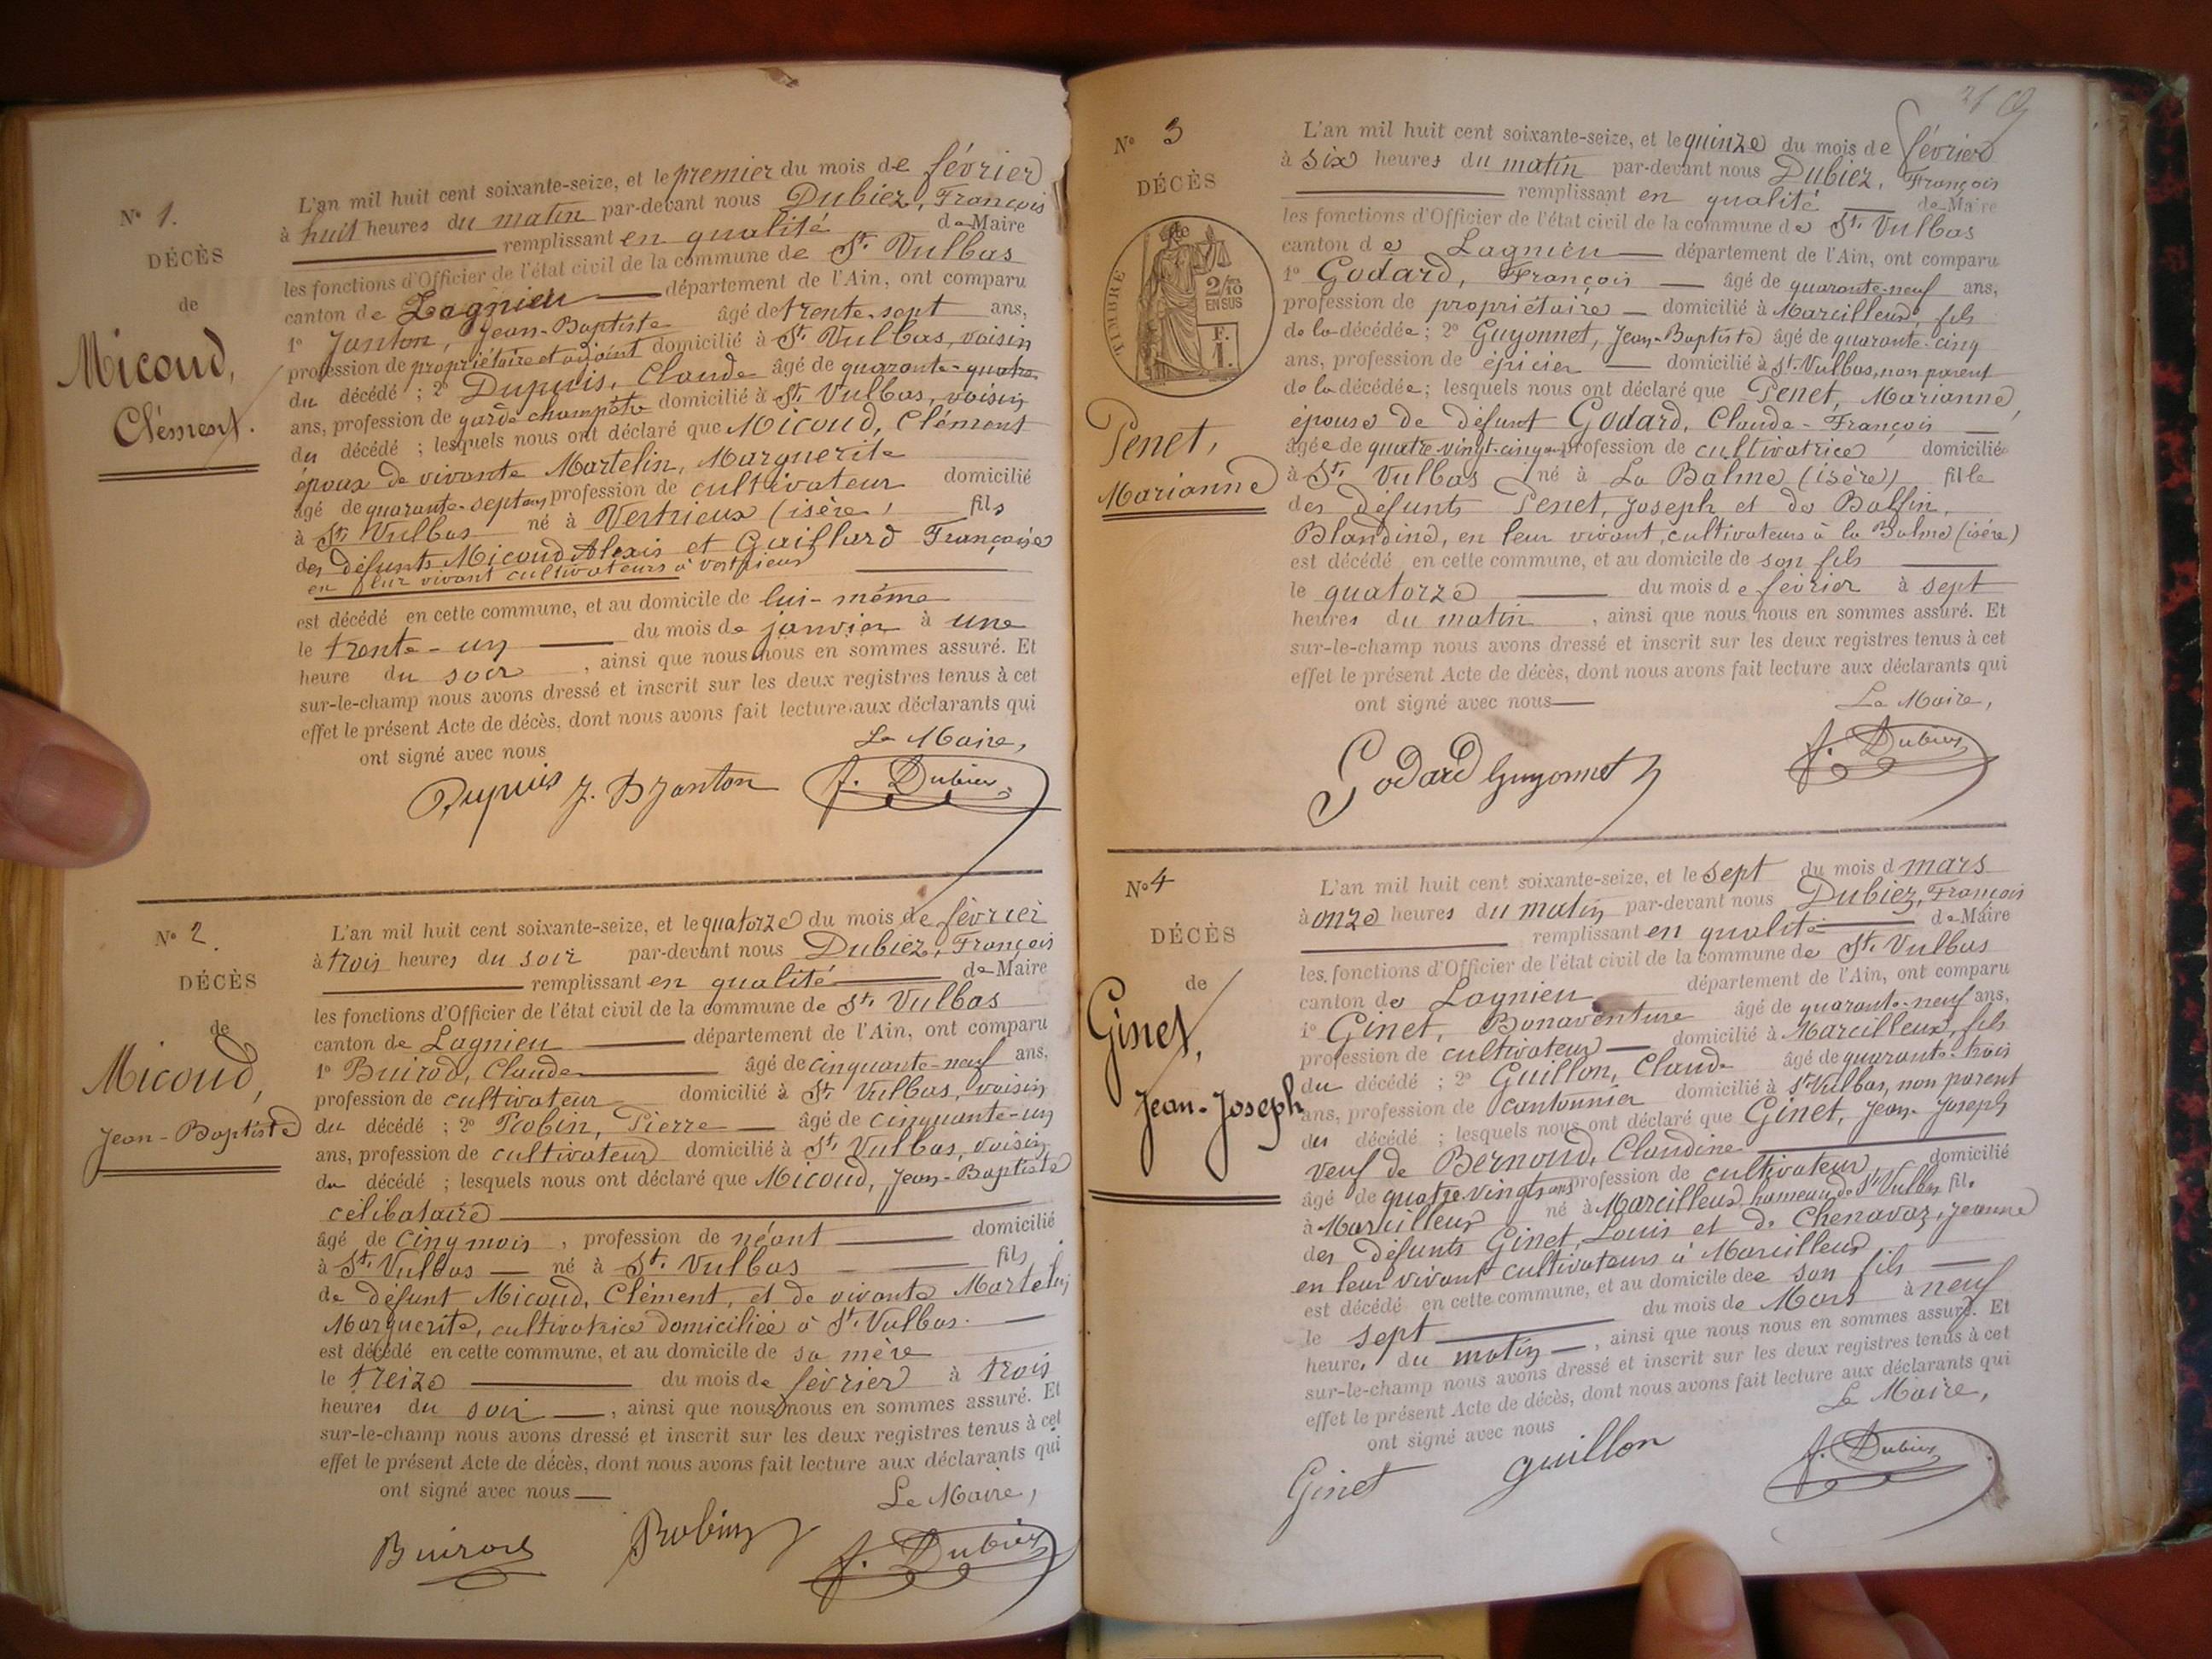 N° 1.
DÉCÈS
de
Micoud,
Clément.
L'an mil huit cent soixante-seize, et le premier du mois de février
à huit heures du matin par-devant nous Dubiez, François
remplissant en qualité de Maire
les fonctions d'Officier de l'état civil de la commune de St. Vulbas
canton de Lagnieu département de l'Ain, ont comparu
1° Janton, Jean-Baptiste âgé de trente-sept ans,
profession de propriétaire et adjoint domicilié à St. Vulbas, voisin
du décédé ; 2° Dupuis, Claude âgé de quarante-quatre
ans, profession de garde champêtre domicilié à St. Vulbas, voisin
du décédé ; lesquels nous ont déclaré que Micoud, Clément
époux de vivante Martelin, Marguerite
âgé de quarante-sept ans profession de cultivateur domicilié
à St. Vulbas né à Vertrieux (isère) fils
des défunts Micoud Alexis et Gaillard Françoise
en leur vivant cultivateurs à Vertrieux
est décédé en cette commune, et au domicile de lui-même
le trente-un du mois de janvier à une
heure du soir , ainsi que nous nous en sommes assuré. Et
sur-le-champ nous avons dressé et inscrit sur les deux registres tenus à cet
effet le présent Acte de décès, dont nous avons fait lecture aux déclarants qui
ont signé avec nous
Le Maire,
Dupuis J. B Janton f. Dubiez
N° 2.
DÉCÈS
de
Micoud,
Jean-Baptiste
L'an mil huit cent soixante-seize, et le quatorze du mois de février
à trois heures du soir par-devant nous Dubiez, François
remplissant en qualité de Maire
les fonctions d'Officier de l'état civil de la commune de St. Vulbas
canton de Lagnieu département de l'Ain, ont comparu
1° Buirod, Claude âgé de cinquante-neuf ans,
profession de cultivateur domicilié à St. Vulbas, voisin
du décédé ; 2° Robin, Pierre âgé de cinquante-un
ans, profession de cultivateur domicilié à St. Vulbas, voisin
du décédé ; lesquels nous ont déclaré que Micoud, Jean-Baptiste
célibataire
âgé de cinq mois , profession de néant domicilié
à St. Vulbas né à St. Vulbas fils
de défunt Micoud, Clément, et de vivante Martelin
Marguerite, cultivatrice domiciliée à St. Vulbas.
est décédé en cette commune, et au domicile de sa mère
le treize du mois de février à trois
heures du soir , ainsi que nous nous en sommes assuré. Et
sur-le-champ nous avons dressé et inscrit sur les deux registres tenus à cet
effet le présent Acte de décès, dont nous avons fait lecture aux déclarants qui
ont signé avec nous
Le Maire,
Buirod Robin f. Dubiez
N° 3
DÉCÈS
TIMBRE
2/10
EN SUS
F.
1.
Penet,
Marianne
L'an mil huit cent soixante-seize, et le quinze du mois de février
à six heures du matin par-devant nous Dubiez, François
remplissant en qualité de Maire
les fonctions d'Officier de l'état civil de la commune de St. Vulbas
canton de Lagnieu département de l'Ain, ont comparu
1° Godard, François âgé de quarante-neuf ans,
profession de propriétaire domicilié à Marcilleux, fils
de la décédée ; 2° Guyonnet, Jean-Baptiste âgé de quarante-cinq
ans, profession de épicier domicilié à St. Vulbas, non parent
de la décédée ; lesquels nous ont déclaré que Penet, Marianne,
épouse de défunt Godard, Claude-François
âgée de quatre vingt-cinq ans profession de cultivatrice domiciliée
à St. Vulbas né à La Balme (isère) fille
des défunts Penet, Joseph et de Balfin,
Blandine, en leur vivant, cultivateurs à la Balme (isère)
est décédé en cette commune, et au domicile de son fils
le quatorze du mois de février à sept
heures du matin , ainsi que nous nous en sommes assuré. Et
sur-le-champ nous avons dressé et inscrit sur les deux registres tenus à cet
effet le présent Acte de décès, dont nous avons fait lecture aux déclarants qui
ont signé avec nous
Le Maire,
Godard Guyonnet f. Dubiez
N° 4
DÉCÈS
de
Ginet,
Jean-Joseph
L'an mil huit cent soixante-seize, et le sept du mois d mars
à onze heures du matin par-devant nous Dubiez, François
remplissant en qualité de Maire
les fonctions d'Officier de l'état civil de la commune de St. Vulbas
canton de Lagnieu département de l'Ain, ont comparu
1° Ginet, Bonaventure âgé de quarante-neuf ans,
profession de cultivateur domicilié à Marcilleux, fils
du décédé ; 2° Guillon, Claude âgé de quarante-trois
ans, profession de cantonnier domicilié à St. Vulbas, non parent
du décédé ; lesquels nous ont déclaré que Ginet, Jean-Joseph
veuf de Bernoud, Claudine
âgé de quatre-vingts ans profession de cultivateur domicilié
à Marcilleux né à Marcilleux, hameau de St. Vulbas fils
des défunts Ginet Louis et de Chenavaz, Jeanne
en leur vivant cultivateurs à Marcilleux
est décédé en cette commune, et au domicile de son fils
le sept du mois de Mars à neuf
heures du matin , ainsi que nous nous en sommes assuré. Et
sur-le-champ nous avons dressé et inscrit sur les deux registres tenus à cet
effet le présent Acte de décès, dont nous avons fait lecture aux déclarants qui
ont signé avec nous
Le Maire,
Ginet guillon f. Dubiez